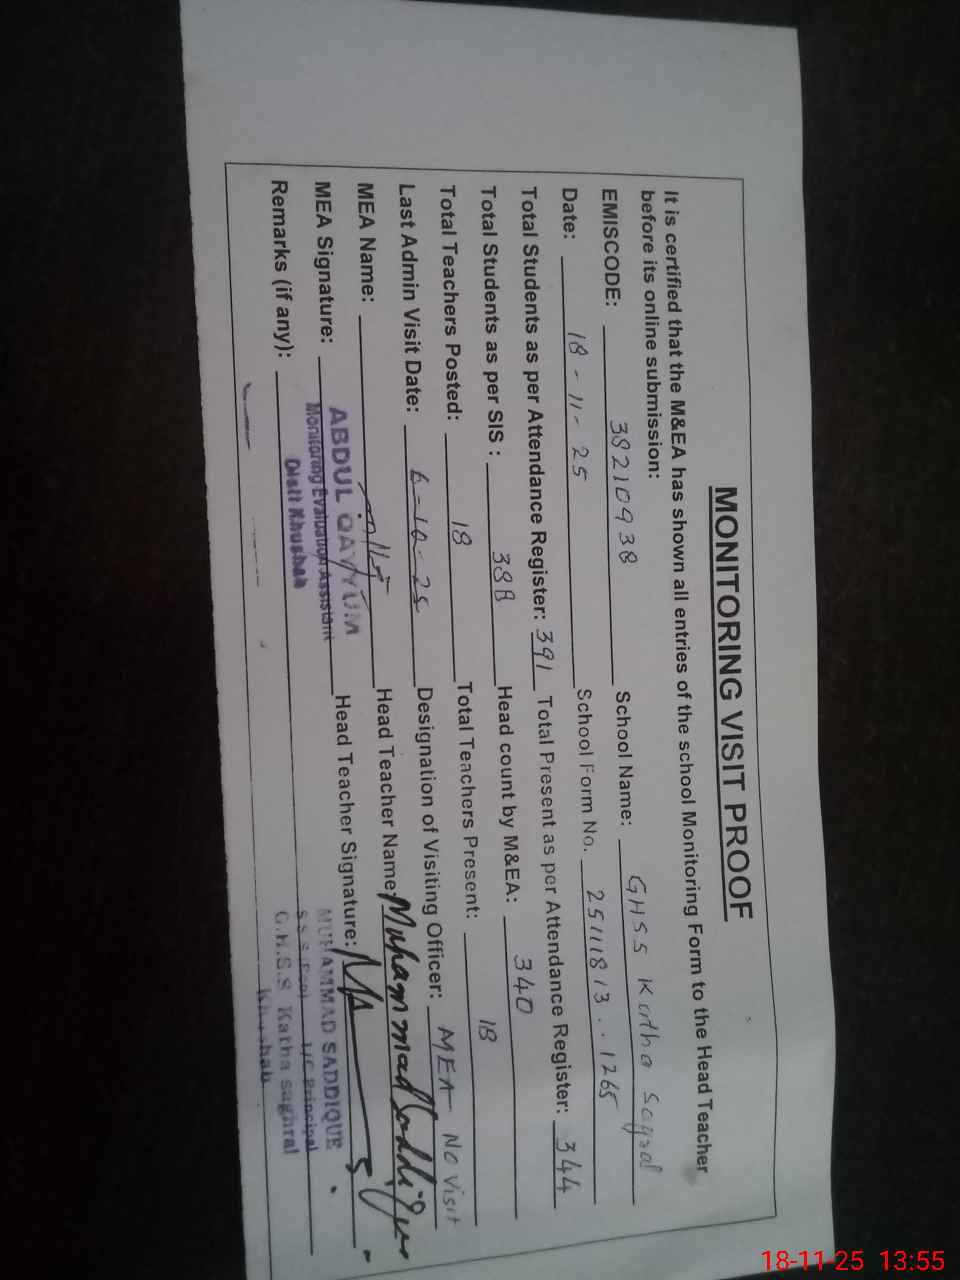 MONITORING VISIT PROOF
It is certified that the M&EA has shown all entries of the school Monitoring Form to the Head Teacher
before its online submission:
EMISCODE: 38210938 School Name: GHSS Katha Sagral
Date: 18-11-25 School Form No. 25111813..1265
Total Students as per Attendance Register: 391 Total Present as per Attendance Register: 344
Total Students as per SIS : 388 Head count by M&EA: 340
Total Teachers Posted: 18 Total Teachers Present: 18
Last Admin Visit Date: 6-10-25 Designation of Visiting Officer: MEA No Visit
MEA Name: Head Teacher Name: Muhammad Saddique
MEA Signature: ABDUL QAYYUM Head Teacher Signature:
Monitoring Evaluation Assistant
Distt Khushab
MUHAMMAD SADDIQUE
I/C Principal
G.H.S.S Katha saghral
Khushab
Remarks (if any):
18-11-25 13:55